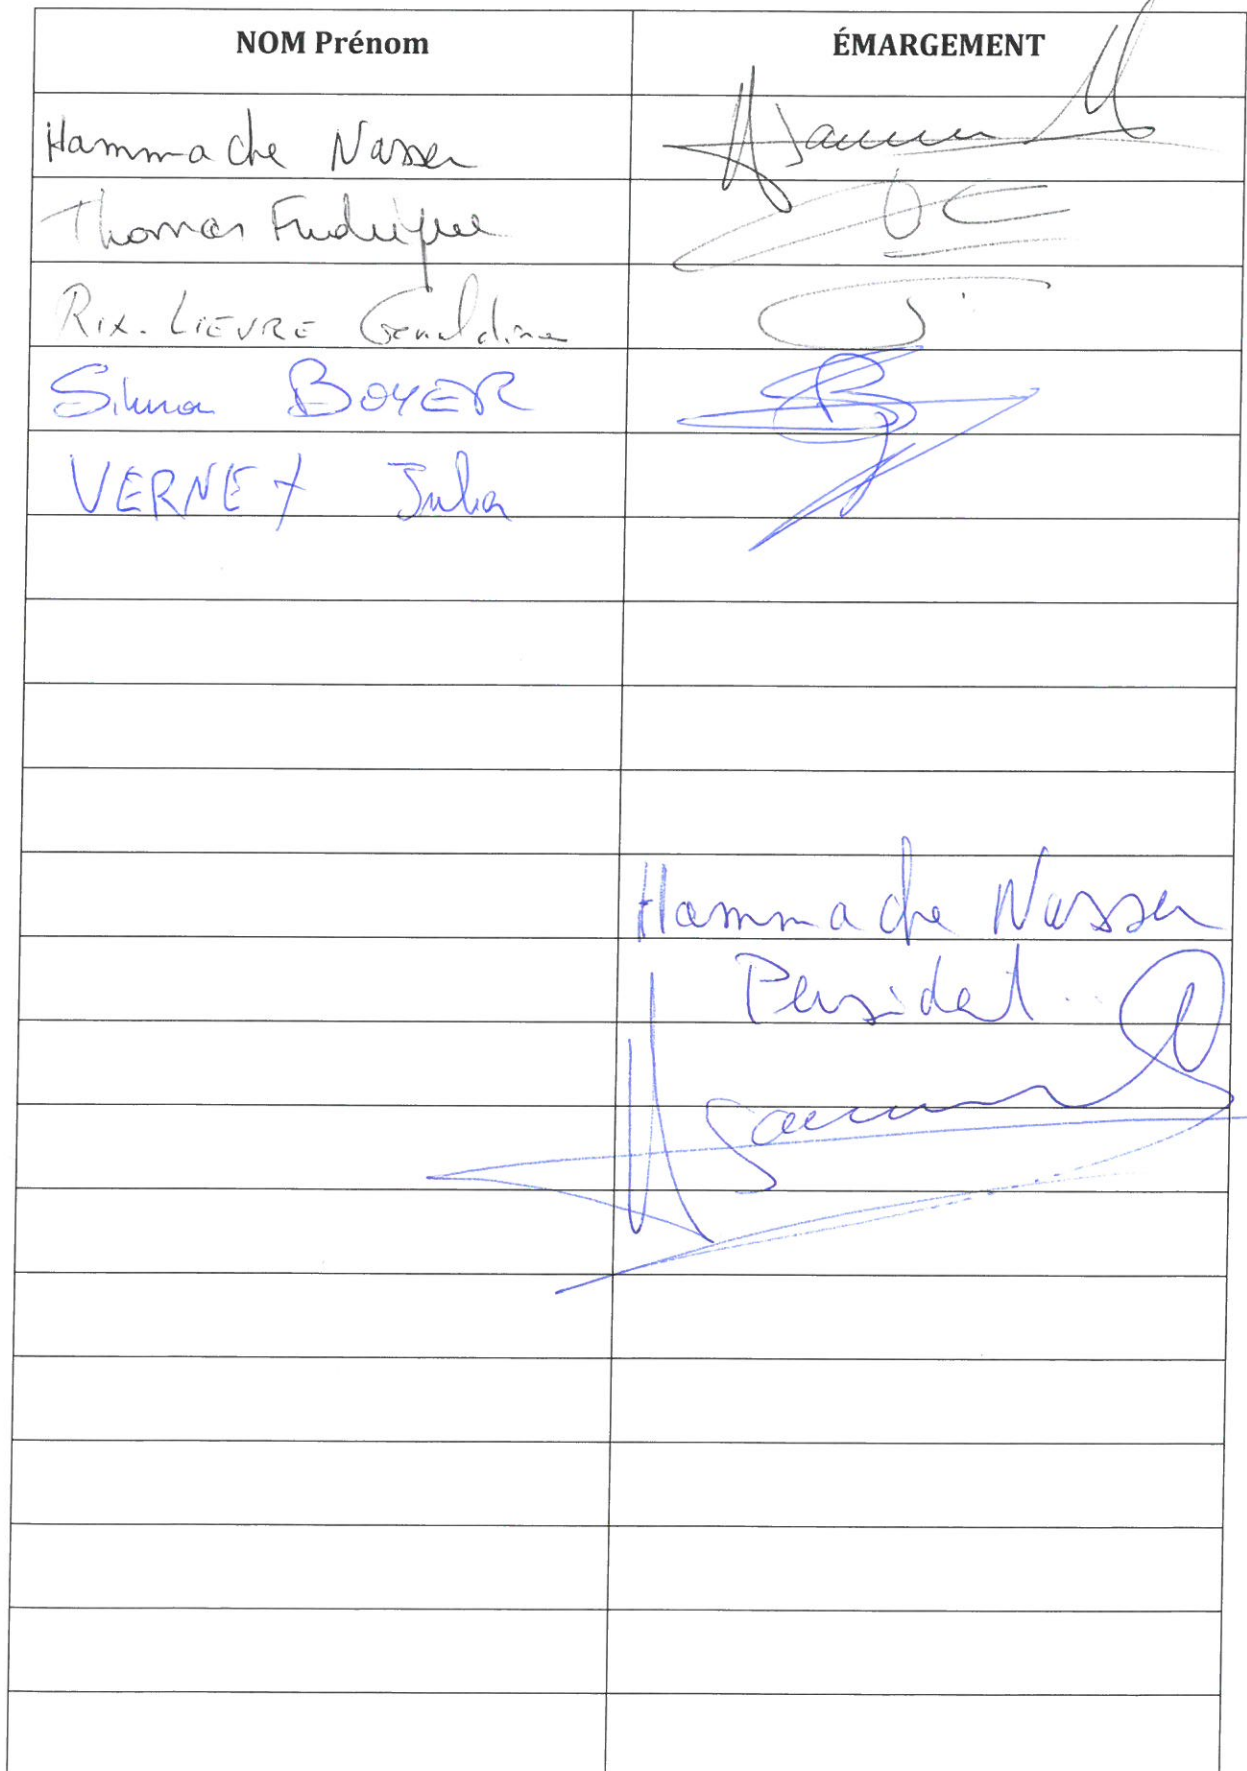 NOM Prénom ÉMARGEMENT
Hammache Nasser
Thomas Frederique
Rix. LIEVRE Geraldine
BOYER
VERNEY Julia
Hammache Nasser
President